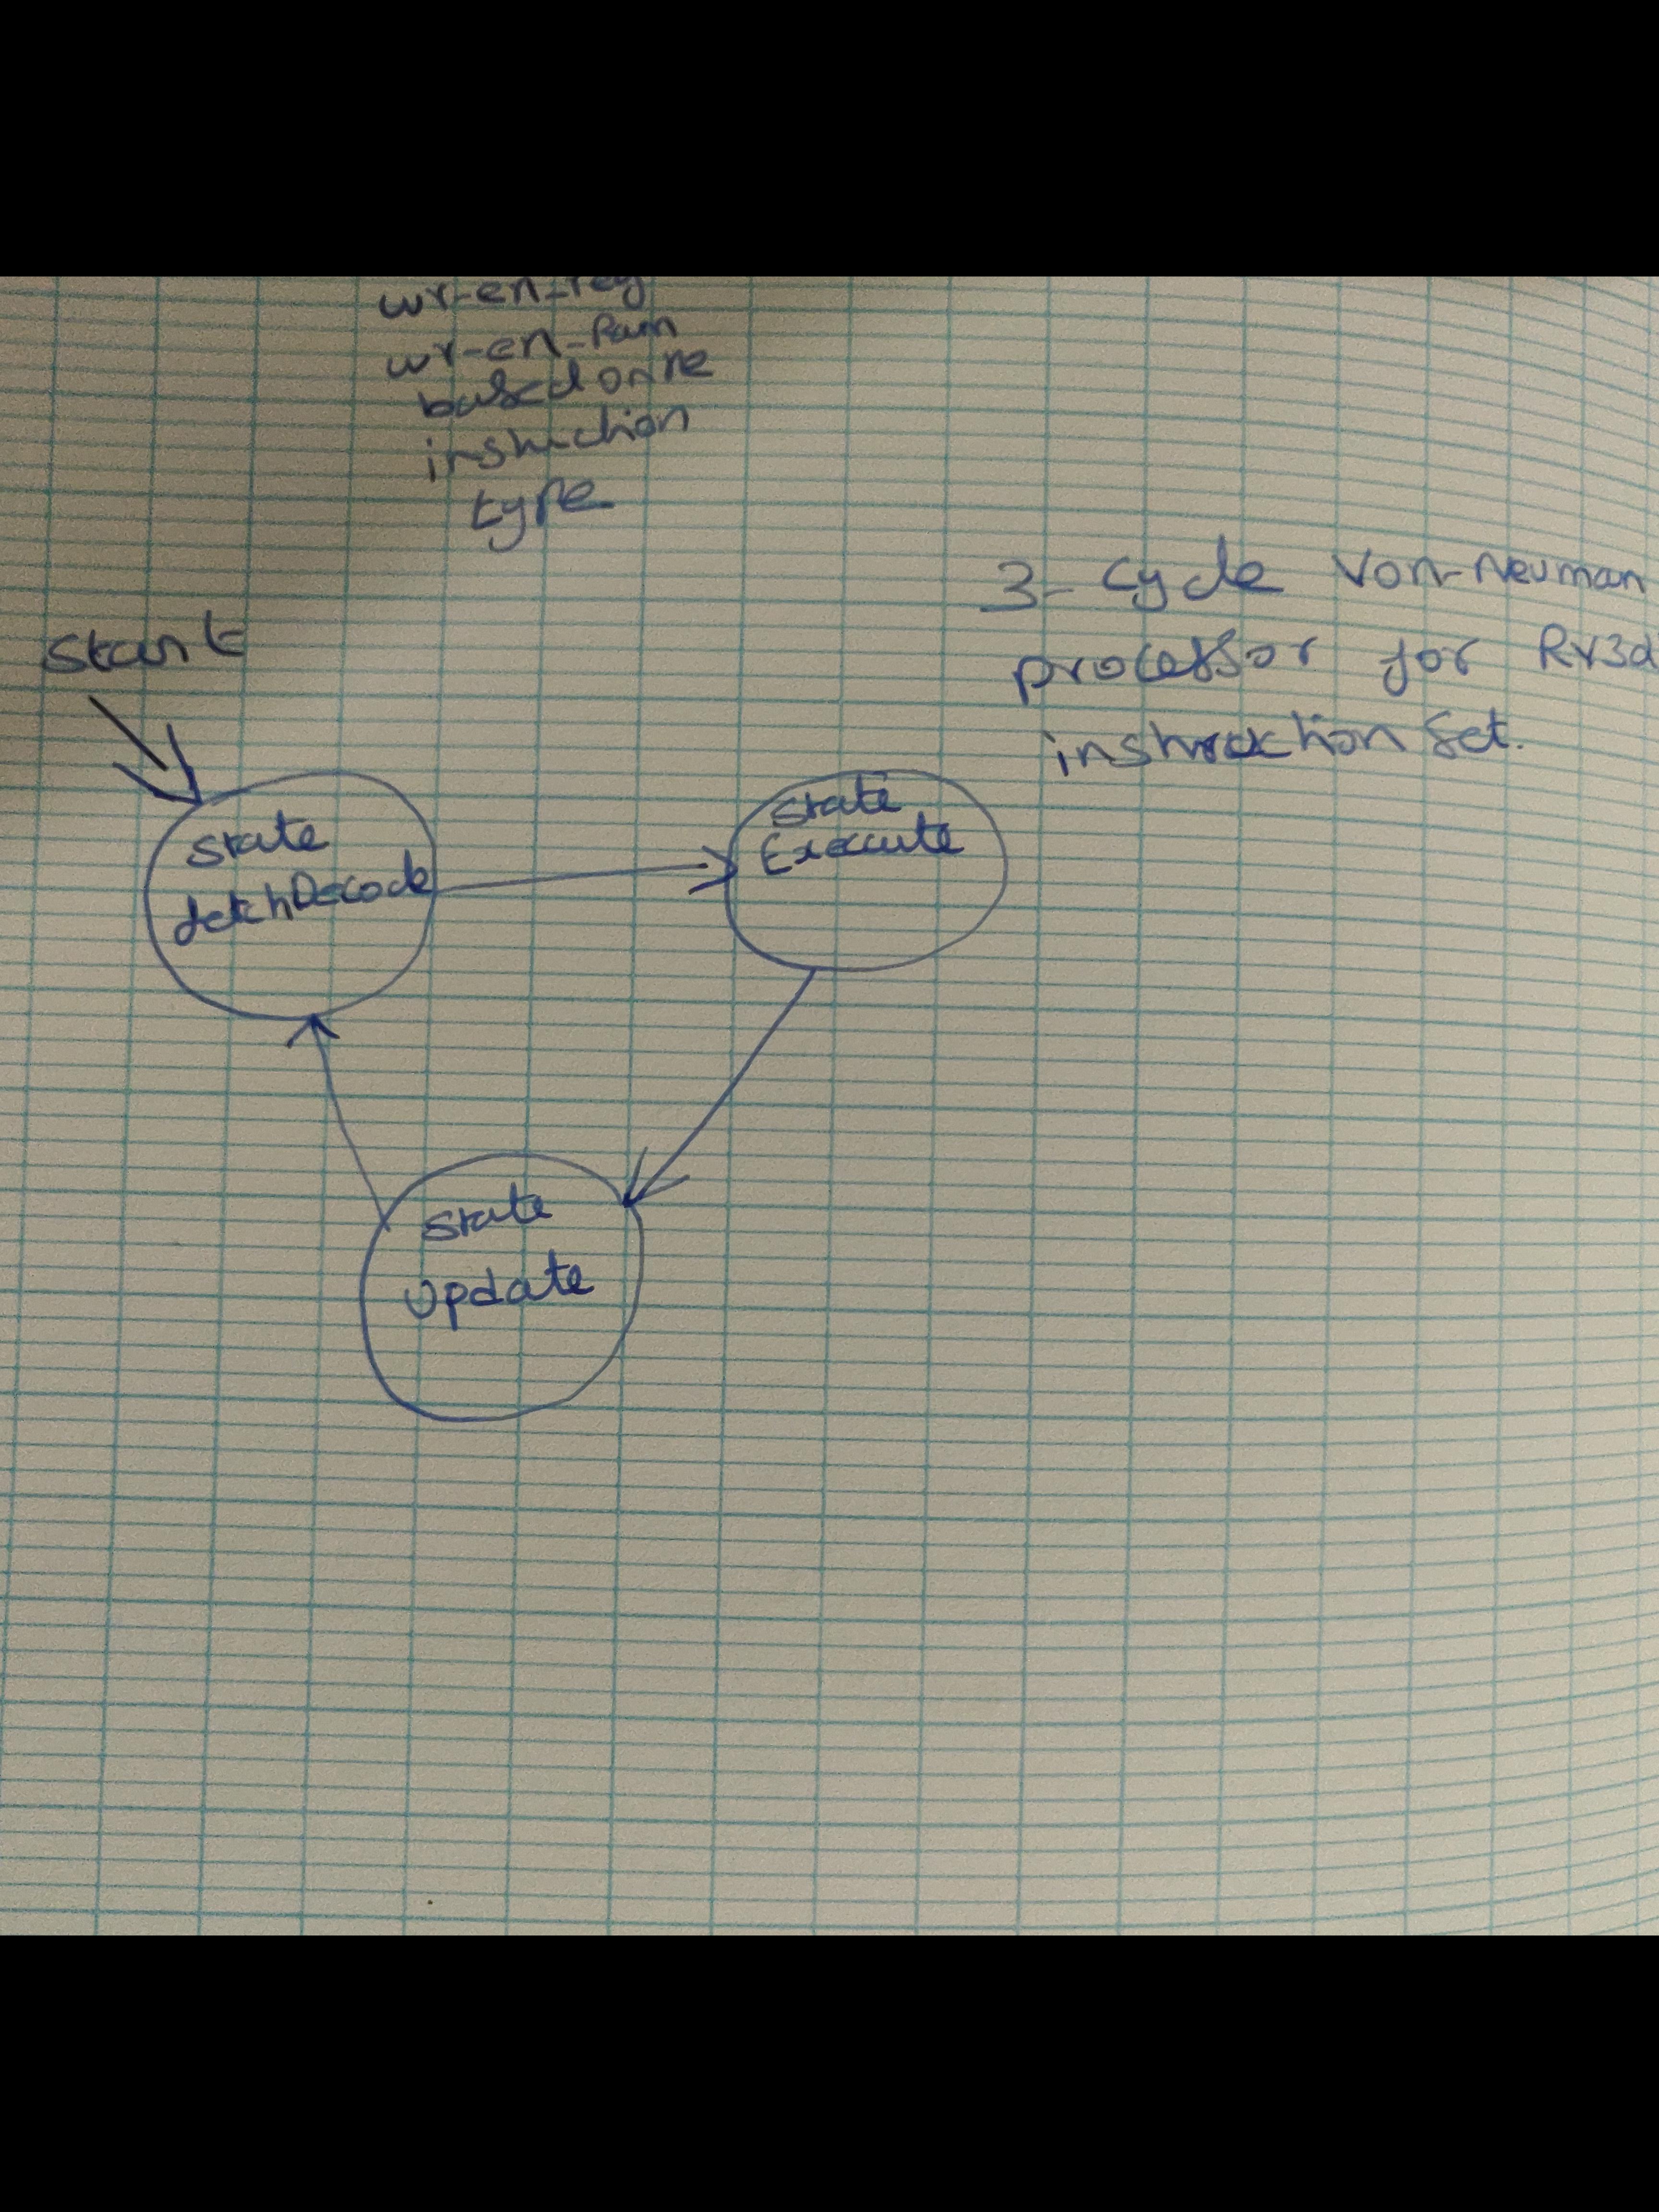 wr-en-reg
wr-en-Ram
based on the
instruction
type
3-Cycle Von-Neuman
processor for RV3
instruction Set.
Start
state
fetchDecode
state
Execute
state
update